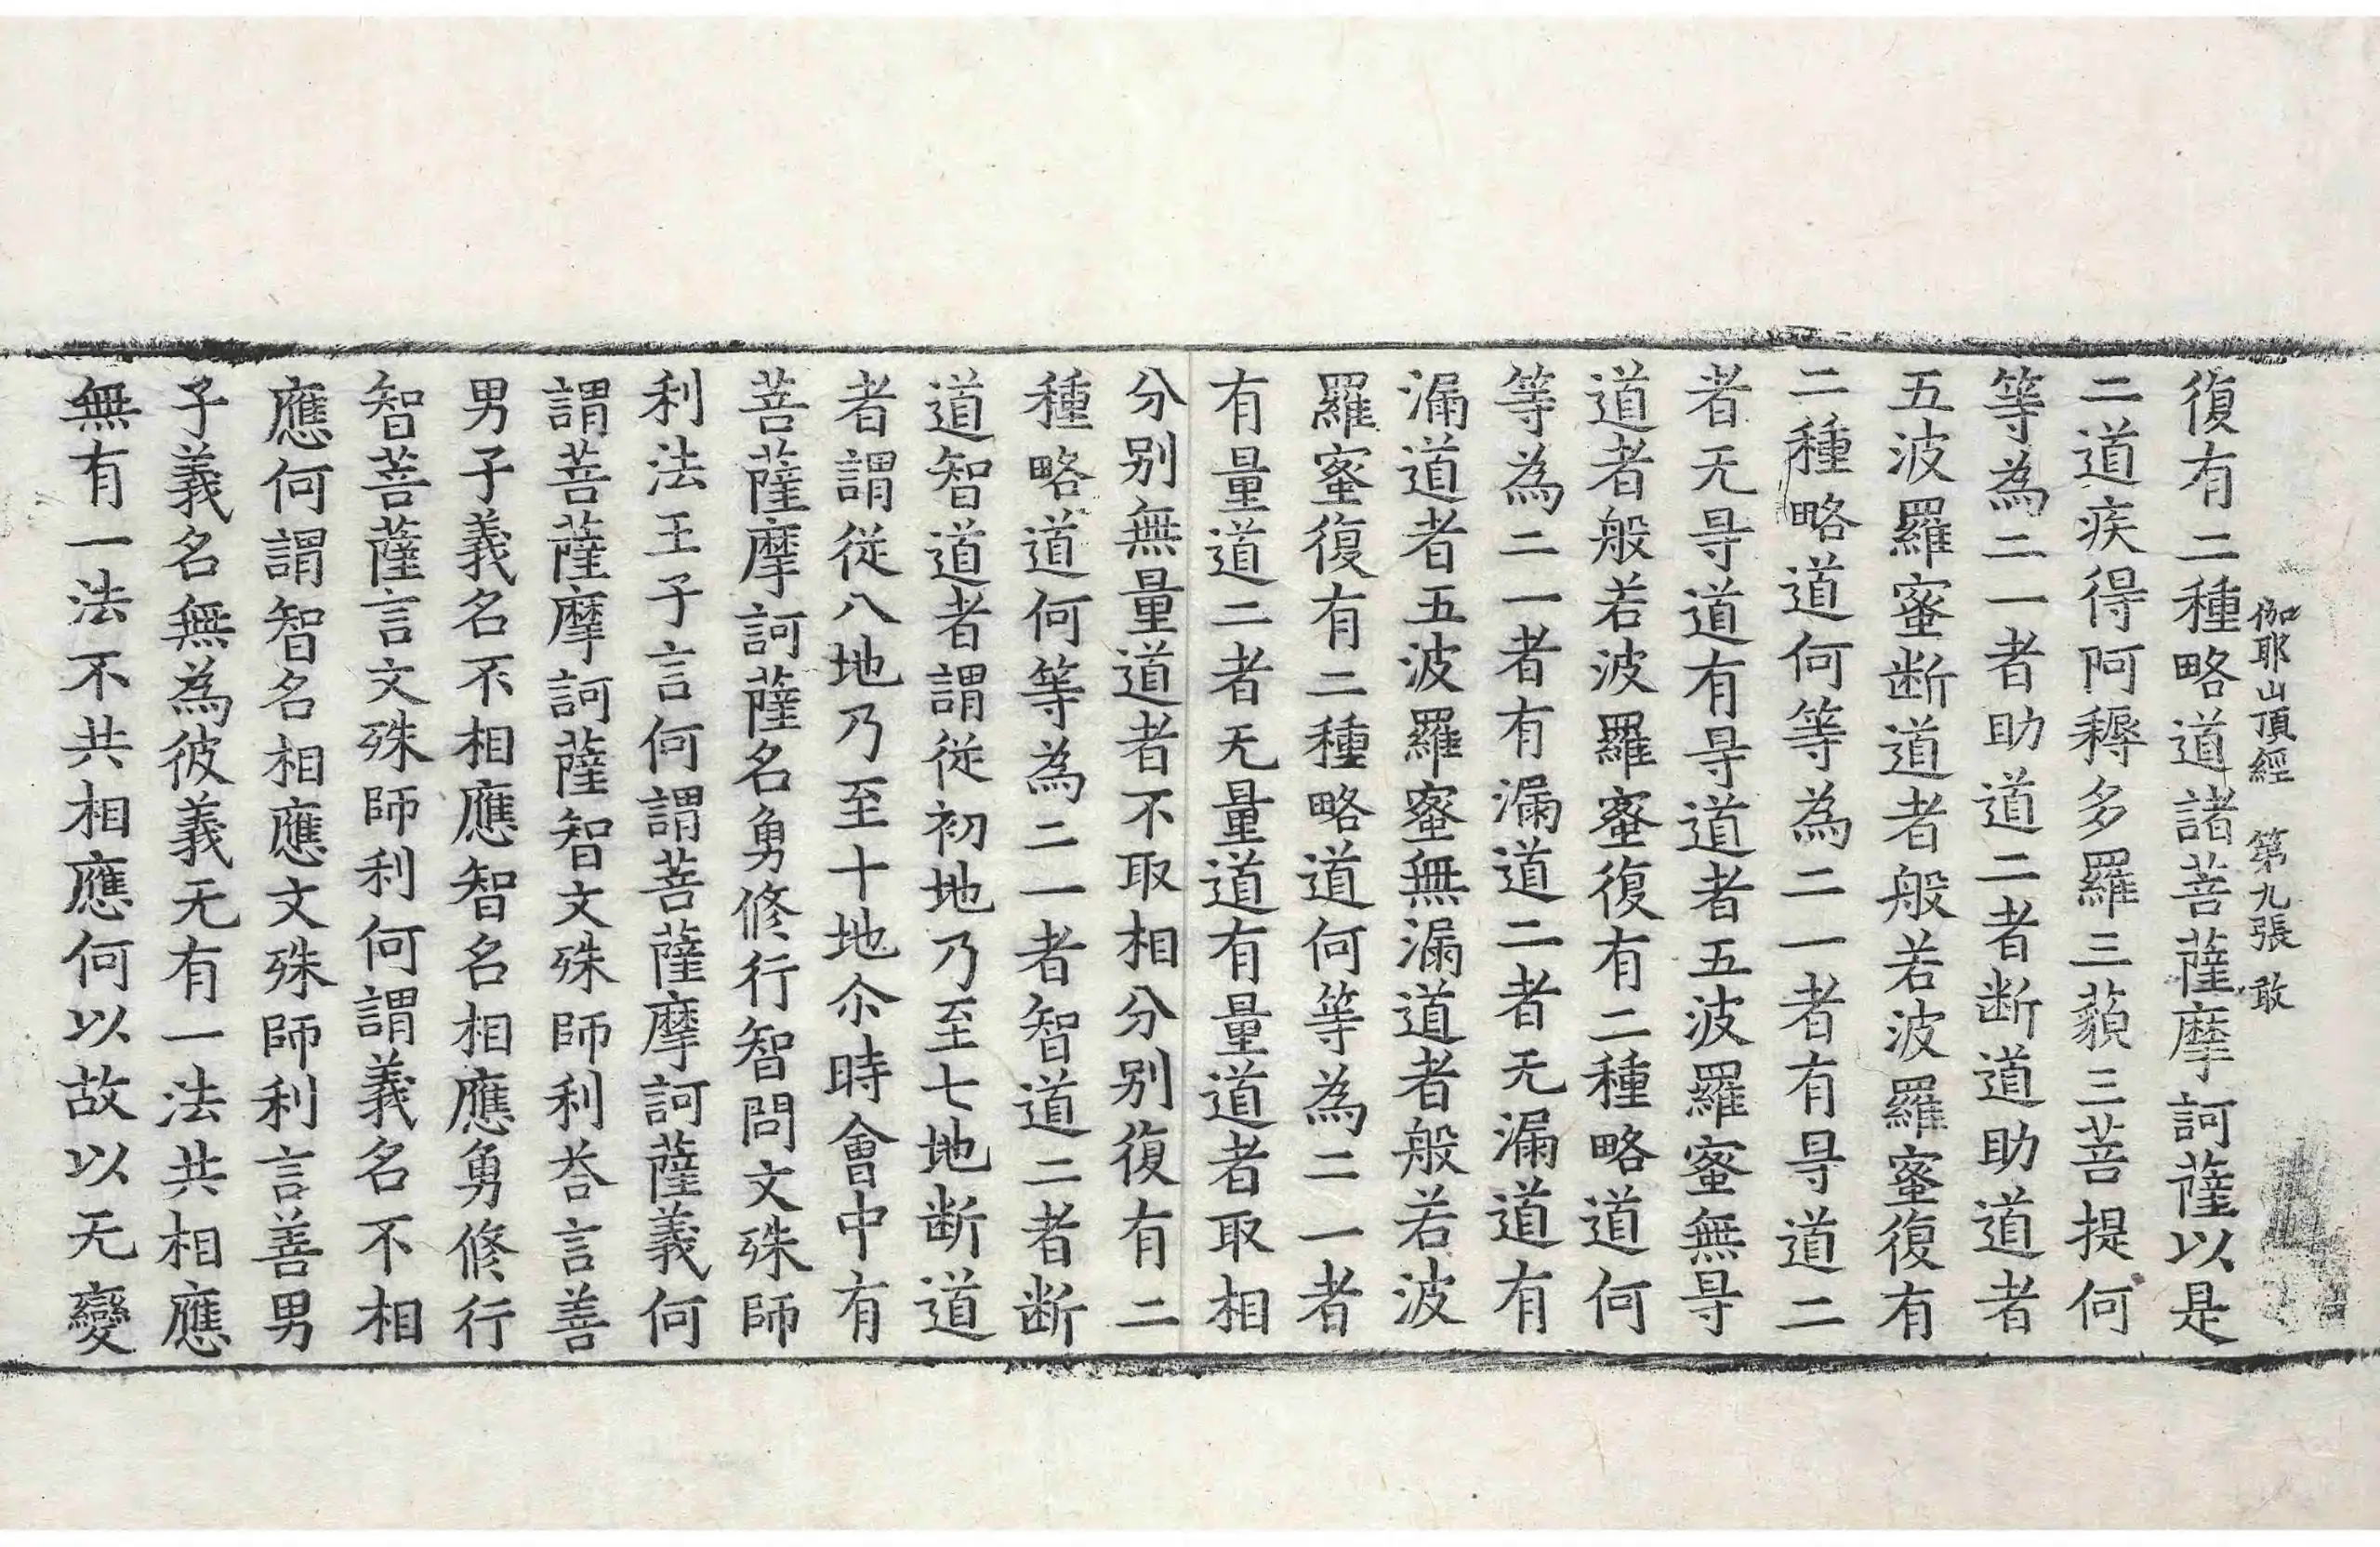 伽耶山頂經 第九張 敢
復有二種略道諸菩薩摩訶薩以是
二道疾得阿耨多羅三藐三菩提何
等為二一者助道二者断道助道者
五波羅蜜断道者般若波羅蜜復有
二種略道何等為二一者有㝵道二
者无㝵道有㝵道者五波羅蜜無㝵
道者般若波羅蜜復有二種略道何
等為二一者有漏道二者无漏道有
漏道者五波羅蜜無漏道者般若波
羅蜜復有二種略道何等為二一者
有量道二者无量道有量道者取相
分别無量道者不取相分别復有二
種略道何等為二一者智道二者断
道智道者謂從初地乃至七地断道
者謂從八地乃至十地尒時會中有
菩薩摩訶薩名勇修行智問文殊師
利法王子言何謂菩薩摩訶薩義何
謂菩薩摩訶薩智文殊師利荅言善
男子義名不相應智名相應勇修行
智菩薩言文殊師利何謂義名不相
應何謂智名相應文殊師利言善男
子義名無為彼義无有一法共相應
無有一法不共相應何以故以无變